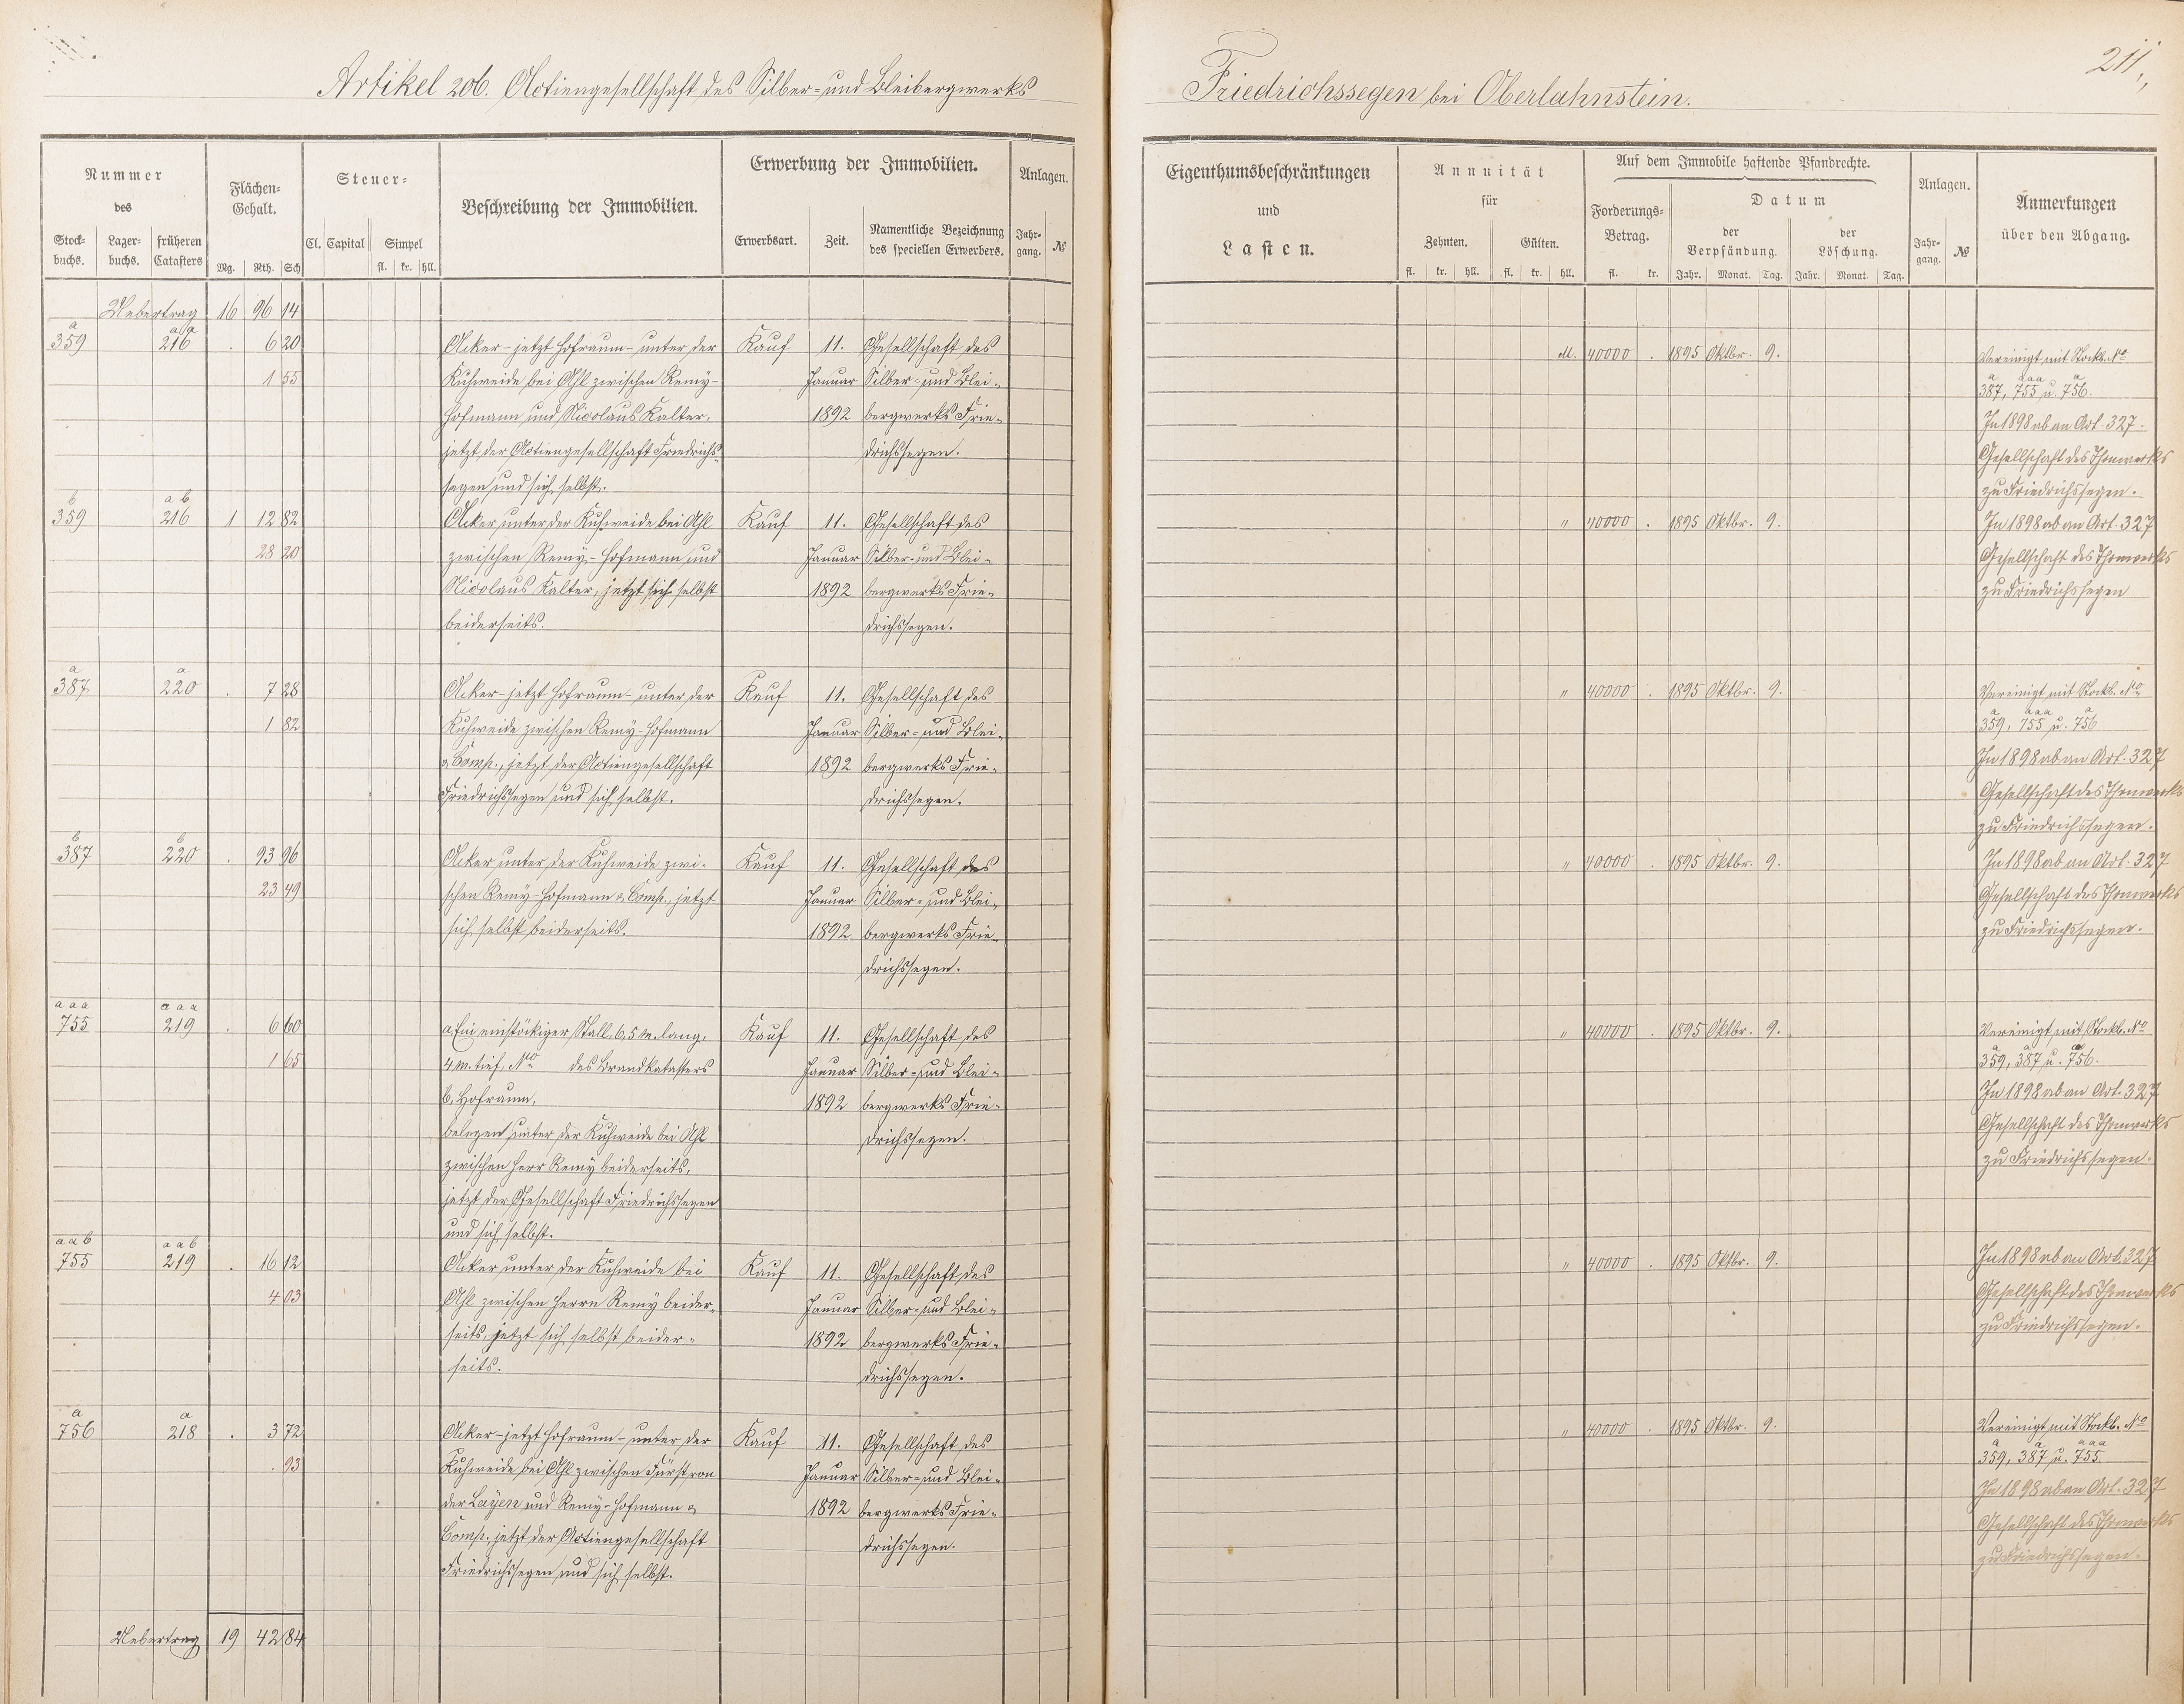 Artikel 206. Actiengesellschaft des Silber- und Bleibergwerks
Friedrichssegen bei Oberlahnstein.
211,,
Nummer
des
Stock-
buchs.
Lager-
buchs.
früheren
Catasters
Flächen-
Gehalt.
Mg. Rth. Sch
Steuer-
Cl. Capital Simpel
fl. kr. hll.
Beschreibung der Immobilien.
Erwerbung der Immobilien.
Erwerbsart.
Zeit.
Namentliche Bezeichnung
des speciellen Erwerbers.
Anlagen.
Jahr-
gang. №
Eigenthumsbeschränkungen
und
Lasten.
Annuität
für
Zehnten. Gülten.
fl. kr. hll. fl. kr. hll.
Auf dem Immobile haftende Pfandrechte.
Forderungs-
Betrag.
fl. kr.
Datum
der
Verpfändung.
Jahr. Monat. Tag.
der
Löschung.
Jahr. Monat. Tag.
Anlagen.
Jahr-
gang. №
Anmerkungen
über den Abgang.
Uebertrag 16 96 14
a a a
359 216 . 6 20
1 55
Acker - jetzt Hofraum - unter der
Kuhweide bei Ahl zwischen Remy-
Hofmann und Nicolaus Kalter,
jetzt der Actiengesellschaft Friedrichs-
segen und sich selbst.
Kauf
11.
Januar
1892
Gesellschaft des
Silber- und Blei-
bergwerks Frie-
drichssegen.
M. 40000 . 1895 Oktbr. 9.
Vereinigt mit Stockb. No
a aaa a
387, 755 u. 756.
In 1898 ab an Art. 327.
Gesellschaft des Thonwerks
zu Friedrichssegen.
b a b
359 216 1 12 82
28 20
Acker unter der Kuhweide bei Ahl
zwischen Remy-Hofmann und
Nicolaus Kalter, jetzt sich selbst
beiderseits.
Kauf
11.
Januar
1892
Gesellschaft des
Silber- und Blei-
bergwerks Frie-
drichssegen.
" 40000 . 1895 Oktbr. 9.
In 1898 ab an Art. 327
Gesellschaft des Thonwerks
zu Friedrichssegen
a a
387 220 . 7 28
1 82
Acker - jetzt Hofraum - unter der
Kuhweide zwischen Remy-Hofmann
& Comp., jetzt der Actiengesellschaft
Friedrichssegen und sich selbst.
Kauf
11.
Januar
1892
Gesellschaft des
Silber- und Blei-
bergwerks Frie-
drichssegen.
" 40000 . 1895 Oktbr. 9.
Vereinigt mit Stockb. No
a aaa a
359, 755 u. 756
In 1898 ab an Art. 327
Gesellschaft des Thonwerks
zu Friedrichssegen.
b b
387 220 . 93 96
23 49
Acker unter der Kuhweide zwi-
schen Remy-Hofmann & Comp., jetzt
sich selbst beiderseits.
Kauf
11.
Januar
1892
Gesellschaft des
Silber- und Blei-
bergwerks Frie-
drichssegen.
" 40000 . 1895 Oktbr. 9.
In 1898 ab an Art. 327
Gesellschaft des Thonwerks
zu Friedrichssegen.
a a a a a a
755 219 . 6 60
1 65
a, Ein einstöckiger Stall, 6,5 m. lang,
4 m. tief, No des Brandkatasters
b, Hofraum,
belegen unter der Kuhweide bei Ahl
zwischen Herr Remy beiderseits,
jetzt der Gesellschaft Friedrichssegen
und sich selbst.
Kauf
11.
Januar
1892
Gesellschaft des
Silber- und Blei-
bergwerks Frie-
drichssegen.
" 40000 . 1895 Oktbr. 9.
Vereinigt mit Stockb. No
a a a
359, 387 u. 756.
In 1898 ab an Art. 327
Gesellschaft des Thonwerks
zu Friedrichssegen.
a a b a a b
755 219 . 16 12
4 03
Acker unter der Kuhweide bei
Ahl zwischen Herrn Remy beider-
seits, jetzt sich selbst beider-
seits.
Kauf
11.
Januar
1892
Gesellschaft des
Silber- und Blei-
bergwerks Frie-
drichssegen.
" 40000 . 1895 Oktbr. 9.
In 1898 ab an Art. 327
Gesellschaft des Thonwerks
zu Friedrichssegen.
a a
756 218 . 3 72
. 93
Acker - jetzt Hofraum - unter der
Kuhweide bei Ahl zwischen Fürst von
der Layen und Remy-Hofmann &
Comp. jetzt der Actiengesellschaft
Friedrichssegen und sich selbst.
Kauf
11.
Januar
1892
Gesellschaft des
Silber- und Blei-
bergwerks Frie-
drichssegen.
" 40000 . 1895 Oktbr. 9.
Vereinigt mit Stockb. No
a a aaa
359, 387 u. 755.
In 1898 ab an Art. 327
Gesellschaft des Thonwerks
zu Friedrichssegen.
Uebertrag 19 42 84